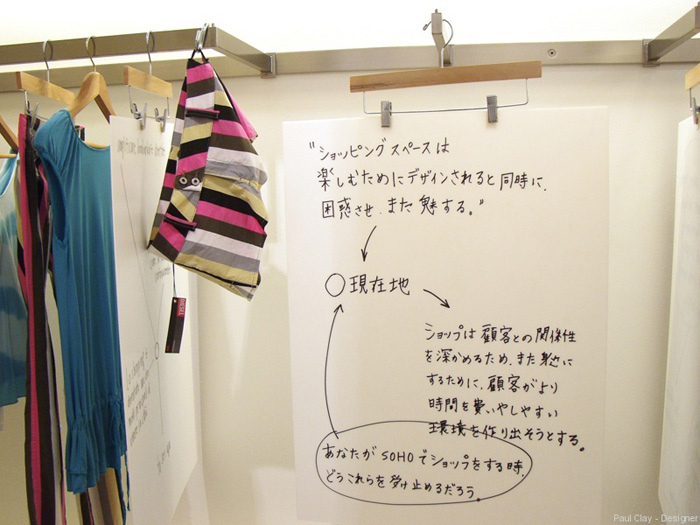 "ショッピングスペースは
楽しむためにデザインされると同時に、
困惑させ、また魅する。"
○現在地
ショップは顧客との関係性
を深めるため、また身近に
するために、顧客がより
時間を費いやしやすい
環境を作り出そうとする。
あなたがSOHOでショップをする時、
どうこれらを受け止めるだろう。
DIESEL
Paul Clay - Designer